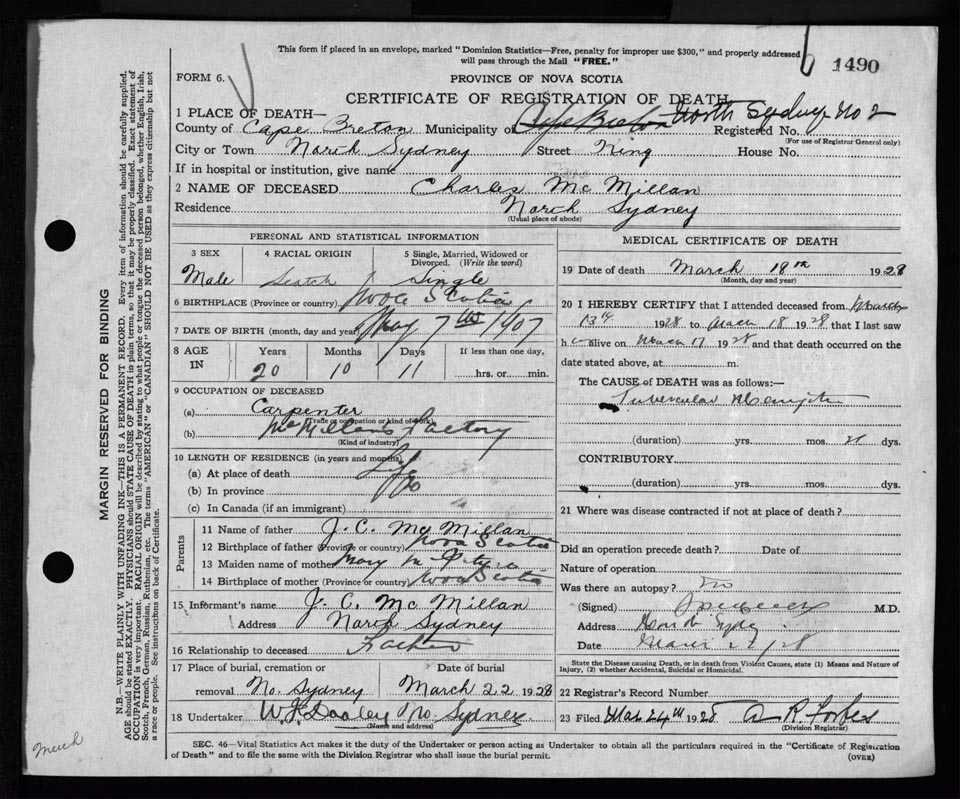 This form if placed in an envelope, marked "Dominion Statistics—Free, penalty for improper use $300," and properly addressed
will pass through the Mail "FREE."
1490
FORM 6.
PROVINCE OF NOVA SCOTIA
CERTIFICATE OF REGISTRATION OF DEATH
1 PLACE OF DEATH—
County of Cape Breton Municipality of Cape Breton North Sydney No 2 Registered No.
(For use of Registrar General only)
City or Town North Sydney Street King House No.
If in hospital or institution, give name
2 NAME OF DECEASED Charles McMillan
Residence North Sydney
(Usual place of abode)
PERSONAL AND STATISTICAL INFORMATION
3 SEX 4 RACIAL ORIGIN 5 Single, Married, Widowed or
Divorced. (Write the word)
Male Scotch Single
6 BIRTHPLACE (Province or country) Nova Scotia
7 DATE OF BIRTH (month, day and year) May 7th 1907
8 AGE IN Years Months Days If less than one day,
20 10 11 hrs. or min.
9 OCCUPATION OF DECEASED
(a) Carpenter
(Trade occupation or kind of work)
(b) McMillans Factory
(Kind of industry)
10 LENGTH OF RESIDENCE (in years and months)
(a) At place of death Life
(b) In province
(c) In Canada (if an immigrant)
Parents
11 Name of father J. C. McMillan
12 Birthplace of father (Province or country) Nova Scotia
13 Maiden name of mother Mary
14 Birthplace of mother (Province or country) Nova Scotia
15 Informant's name J. C. McMillan
Address North Sydney
16 Relationship to deceased Father
17 Place of burial, cremation or Date of burial
removal No. Sydney March 22 1928
18 Undertaker W. J. Dooley No Sydney
(Name and address)
MEDICAL CERTIFICATE OF DEATH
19 Date of death March 18th 1928
(Month, day and year)
20 I HEREBY CERTIFY that I attended deceased from March
13th 1928 to March 18 1928 that I last saw
h alive on March 17 1928 and that death occurred on
date stated above, at m.
The CAUSE OF DEATH was as follows:—
Tubercular Meningitis
(duration) yrs. mos. 21 dys.
CONTRIBUTORY.
(duration) yrs. mos. dys.
21 Where was disease contracted if not at place of death?
Did an operation precede death? Date of
Nature of operation
Was there an autopsy? No
(Signed) M.D.
Address North Sydney
Date March 28
State the Disease causing Death, or in death from Violent Causes, state (1) Means and Nature of
Injury, (2) whether Accidental, Suicidal or Homicidal.
22 Registrar's Record Number
23 Filed Mar 24th 1928 A. R. Forbes
(Division Registrar)
SEC. 46—Vital Statistics Act makes it the duty of the Undertaker or person acting as Undertaker to obtain all the particulars required in the "Certificate of Registration
of Death" and to file the same with the Division Registrar who shall issue the burial permit.
(OVER)
MARGIN RESERVED FOR BINDING
N.B.—WRITE PLAINLY WITH UNFADING INK—THIS IS A PERMANENT RECORD. Every item of information should be carefully supplied.
AGE should be stated EXACTLY. PHYSICIANS should STATE CAUSE OF DEATH in plain terms, so that it may be properly classified. Exact statement of
OCCUPATION is very important. RACIAL ORIGIN will be described by stating to what people or tongue the deceased person belonged, whether English, Irish,
Scotch, French, German, Russian, Ruthenian, etc. The terms "AMERICAN" or "CANADIAN" SHOULD NOT BE USED as they express citizenship but not
a race or people. See instructions on back of Certificate.